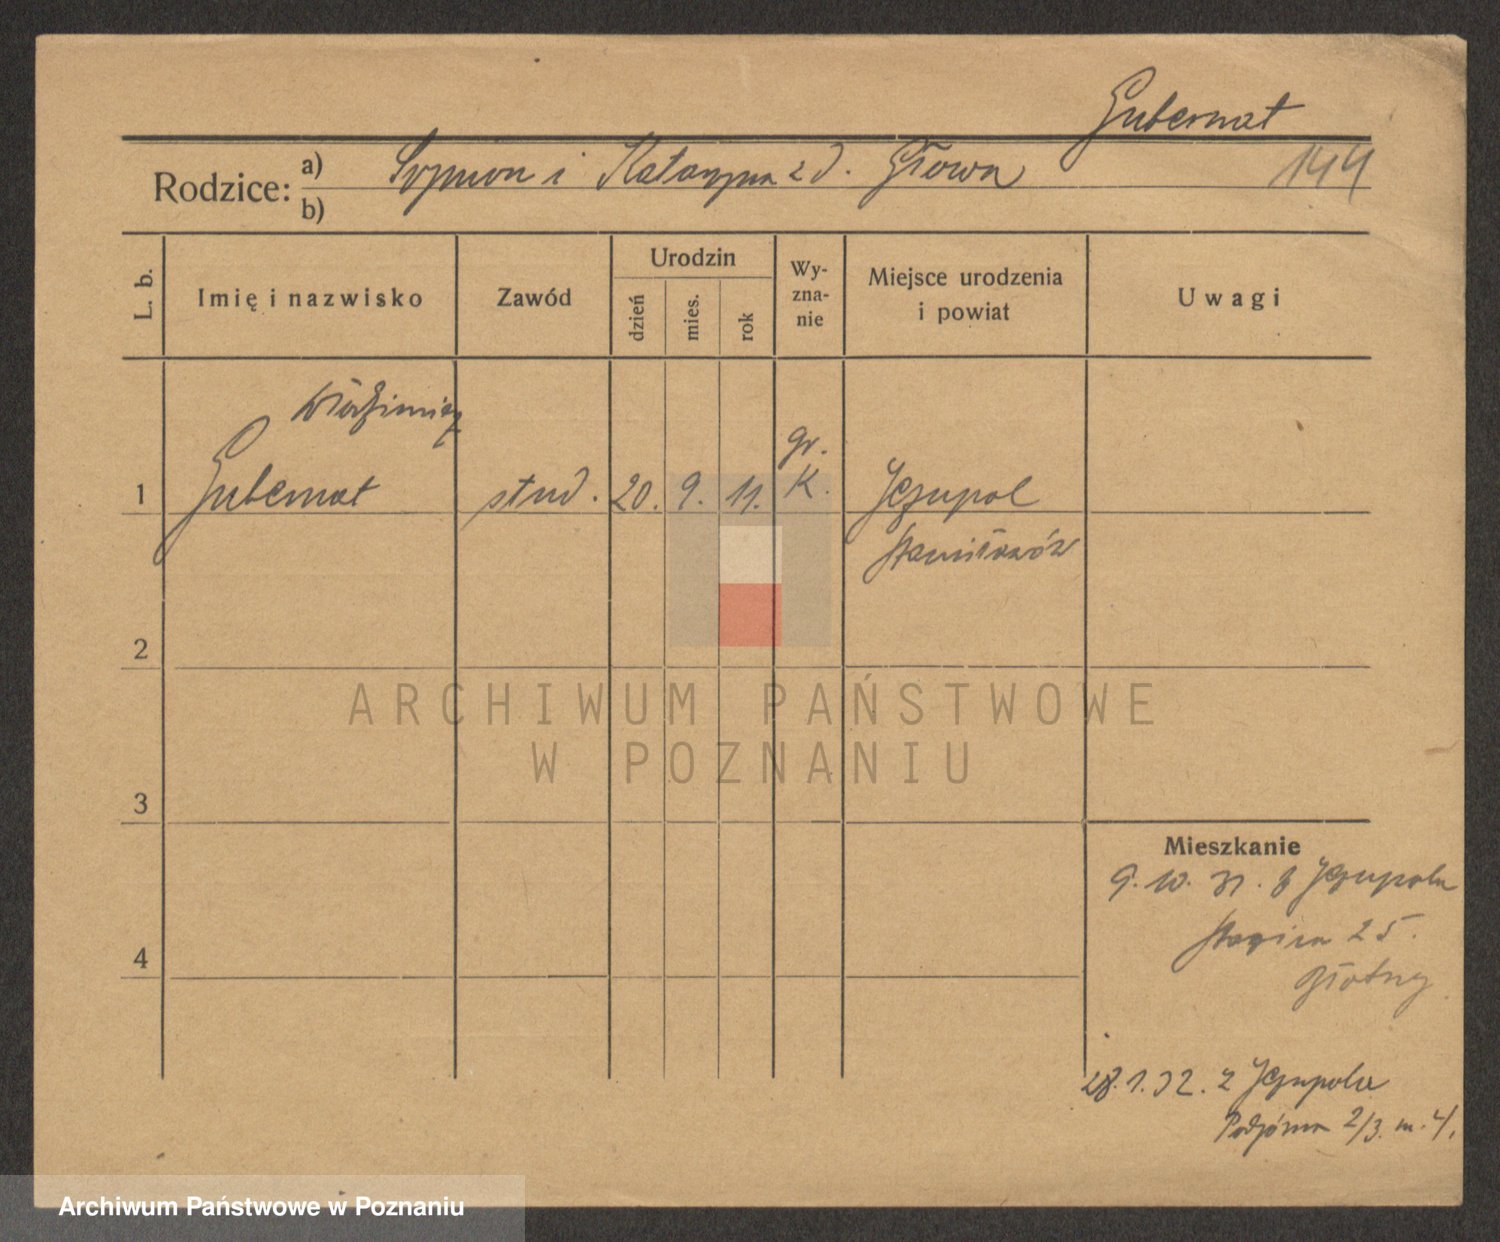 Gubernat
Rodzice: a) Szymon i Katarzyna z d. Głowa
b)
144
L. b.
Imię i nazwisko
Zawód
Urodzin
dzień
mies.
rok
Wy-
zna-
nie
Miejsce urodzenia
i powiat
Uwagi
Włodzimierz
gr.
1 Gubernat stud. 20. 9. 11. K. Jezupol
Stanisławów
2
3
4
ARCHIWUM PAŃSTWOWE
W POZNANIU
Mieszkanie
9. 10. 31. z Jezupola
25.
28. 1. 32. z Jezupola
Podgórna 2/3. m. 4.
Archiwum Państwowe w Poznaniu